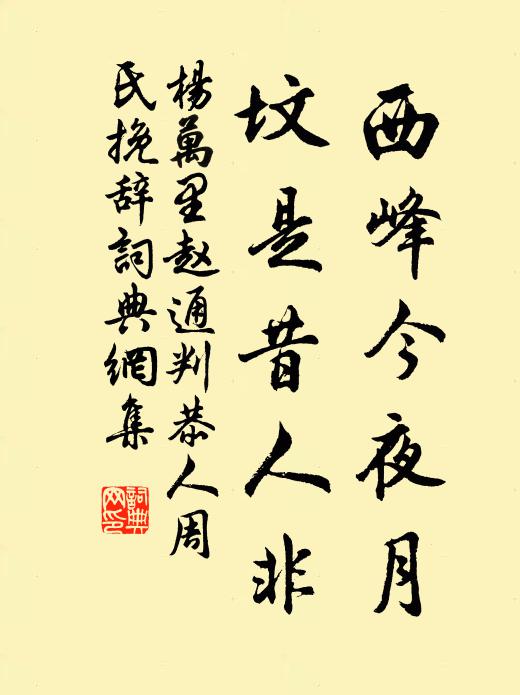 西峰今夜月
坟是昔人非
楊萬里赵通判恭人周
氏挽辞詞典網集
詞典
网印